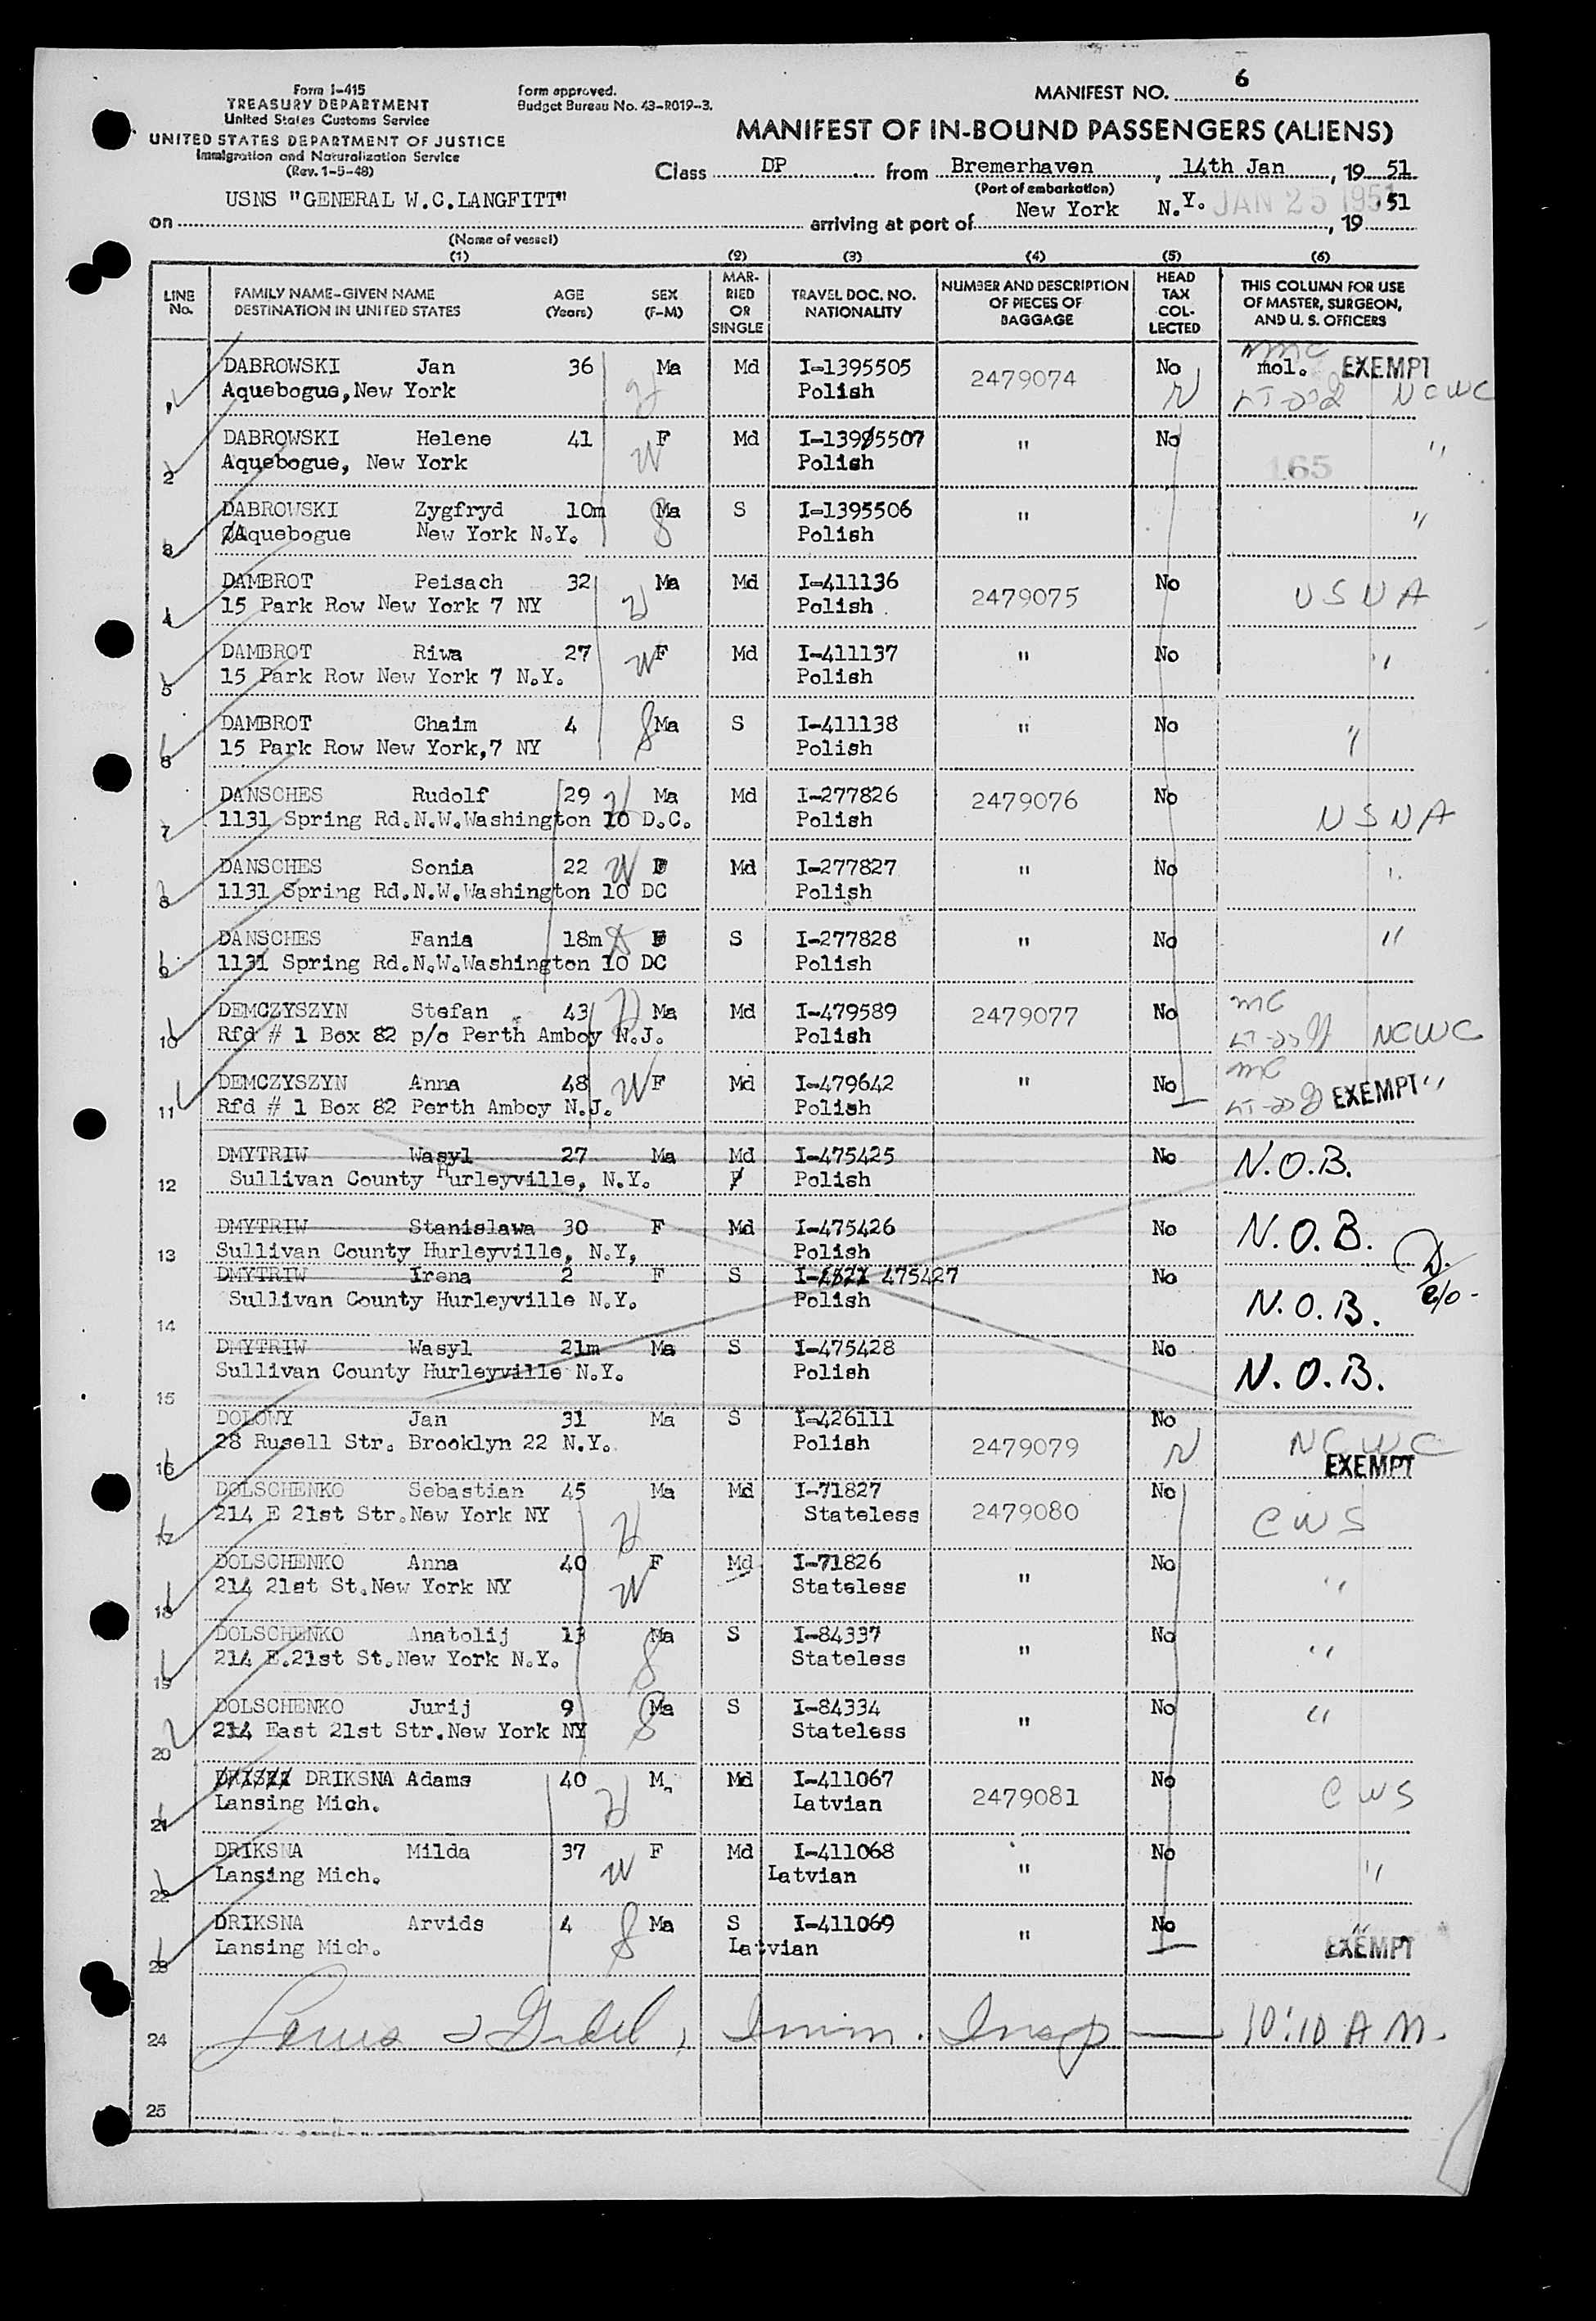 Form I-415
TREASURY DEPARTMENT
United States Customs Service
UNITED STATES DEPARTMENT OF JUSTICE
Immigration and Naturalization Service
(Rev. 1-5-48)
Form approved.
Budget Bureau No. 43-R019-3.
MANIFEST NO. 6
MANIFEST OF IN-BOUND PASSENGERS (ALIENS)
Class DP from Bremerhaven, 14th Jan, 19 51
(Port of embarkation)
on USNS "GENERAL W.C.LANGFITT" arriving at port of New York N.Y. JAN 25 1951, 19 51
(Name of vessel)
(1) (2) (3) (4) (5) (6)
LINE No. FAMILY NAME-GIVEN NAME DESTINATION IN UNITED STATES AGE (Years) SEX (F-M) MARRIED OR SINGLE TRAVEL DOC. NO. NATIONALITY NUMBER AND DESCRIPTION OF PIECES OF BAGGAGE HEAD TAX COLLECTED THIS COLUMN FOR USE OF MASTER, SURGEON, AND U. S. OFFICERS
1 DABROWSKI Jan 36 Ma Md I-1395505 2479074 No mol. EXEMPT
Aquebogue,New York Polish NCWC
2 DABROWSKI Helene 41 F Md I-1395507 " No "
Aquebogue, New York Polish 165
3 DABROWSKI Zygfryd 10m Ma S I-1395506 " "
Aquebogue New York N.Y. Polish
4 DAMBROT Peisach 32 Ma Md I-411136 2479075 No USNA
15 Park Row New York 7 NY Polish
5 DAMBROT Riwa 27 F Md I-411137 " No "
15 Park Row New York 7 N.Y. Polish
6 DAMBROT Chaim 4 Ma S I-411138 " No "
15 Park Row New York,7 NY Polish
7 DANSCHES Rudolf 29 Ma Md I-277826 2479076 No USNA
1131 Spring Rd.N.W.Washington 10 D.C. Polish
8 DANSCHES Sonia 22 F Md I-277827 " No "
1131 Spring Rd.N.W.Washington 10 DC Polish
9 DANSCHES Fania 18m F S I-277828 " No "
1131 Spring Rd.N.W.Washington 10 DC Polish
10 DEMCZYSZYN Stefan 43 Ma Md I-479589 2479077 No mc
Rfd # 1 Box 82 p/o Perth Amboy N.J. Polish NCWC
11 DEMCZYSZYN Anna 48 F Md I-479642 " No mc
Rfd # 1 Box 82 Perth Amboy N.J. Polish EXEMPT "
12 DMYTRIW Wasyl 27 Ma Md I-475425 No N.O.B.
Sullivan County Hurleyville, N.Y. Polish
13 DMYTRIW Stanislawa 30 F Md I-475426 No N.O.B.
Sullivan County Hurleyville, N.Y, Polish
14 DMYTRIW Irena 2 F S I- 475427 No N.O.B.
Sullivan County Hurleyville N.Y. Polish
15 DMYTRIW Wasyl 21m Ma S I-475428 No N.O.B.
Sullivan County Hurleyville N.Y. Polish
16 DOLOWY Jan 31 Ma S I-426111 No NCWC
28 Rusell Str. Brooklyn 22 N.Y. Polish 2479079 EXEMPT
17 DOLSCHENKO Sebastian 45 Ma Md I-71827 2479080 No CWS
214 E 21st Str.New York NY Stateless
18 DOLSCHENKO Anna 40 F Md I-71826 " No "
214 21st St.New York NY Stateless
19 DOLSCHENKO Anatolij 13 Ma S I-84337 " No "
214 E.21st St.New York N.Y. Stateless
20 DOLSCHENKO Jurij 9 Ma S I-84334 " No "
214 East 21st Str.New York NY Stateless
21 DRIKSNA Adams 40 M Md I-411067 2479081 No CWS
Lansing Mich. Latvian
22 DRIKSNA Milda 37 F Md I-411068 " No "
Lansing Mich. Latvian
23 DRIKSNA Arvids 4 Ma S I-411069 " No "
Lansing Mich. Latvian EXEMPT
24 Imm. Insp 10:10 A M.
25